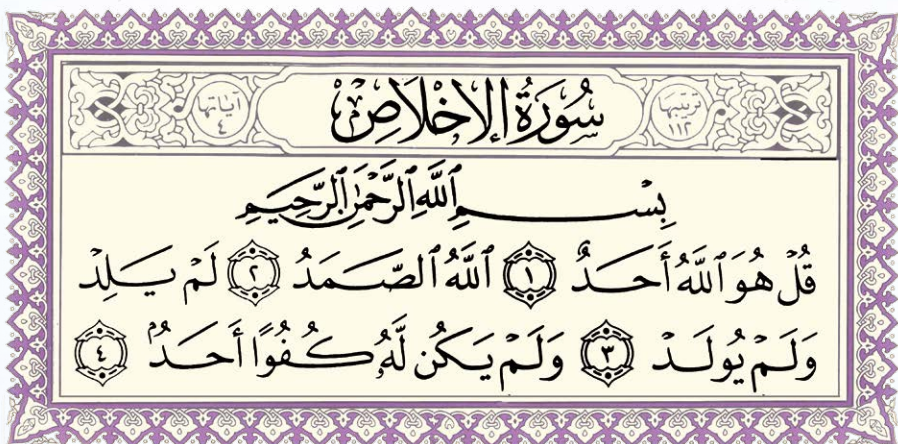 ترتيبها ١١٣ سُورَةُ الإِخْلَاصِ آياتها ٤
بِسْمِ ٱللَّهِ ٱلرَّحْمَٰنِ ٱلرَّحِيمِ
قُلْ هُوَ ٱللَّهُ أَحَدٌ ١ ٱللَّهُ ٱلصَّمَدُ ٢ لَمْ يَلِدْ
وَلَمْ يُولَدْ ٣ وَلَمْ يَكُن لَّهُۥ كُفُوًا أَحَدٌۢ ٤